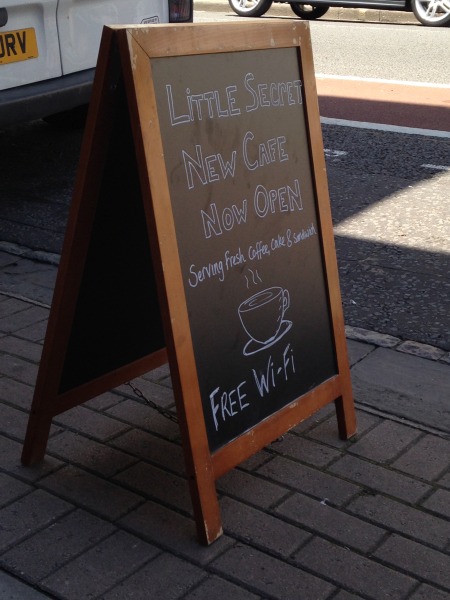 URV
Little Secret
New Cafe
Now Open
Serving Fresh Coffee, Cake & Sandwich
Free Wi-Fi